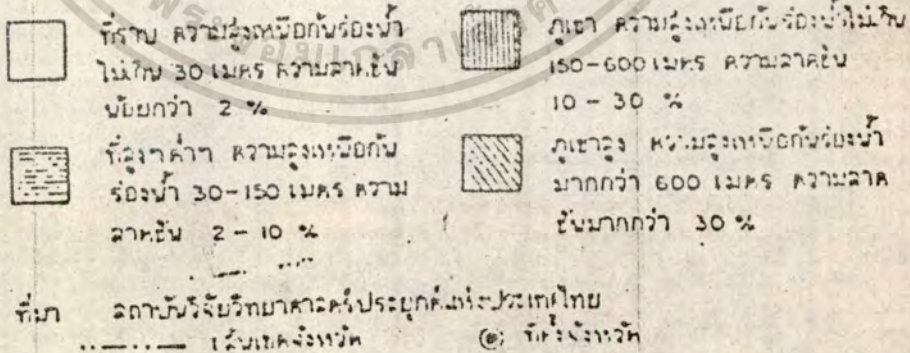 ที่ราบ ความสูงเหนือก้นร่องน้ำ
ไม่เกิน 30 เมตร ความลาดชัน
น้อยกว่า 2 %
ที่สูงๆต่ำๆ ความสูงเหนือก้น
ร่องน้ำ 30-150 เมตร ความ
ลาดชัน 2 - 10 %
ภูเขา ความสูงเหนือก้นร่องน้ำไม่เกิน
150-600 เมตร ความลาดชัน
10 - 30 %
ภูเขาสูง ความสูงเหนือก้นร่องน้ำ
มากกว่า 600 เมตร ความลาด
ชันมากกว่า 30 %
ที่มา สถาบันวิจัยวิทยาศาสตร์ประยุกต์แห่งประเทศไทย
เส้นเขตจังหวัด ที่ตั้งจังหวัด